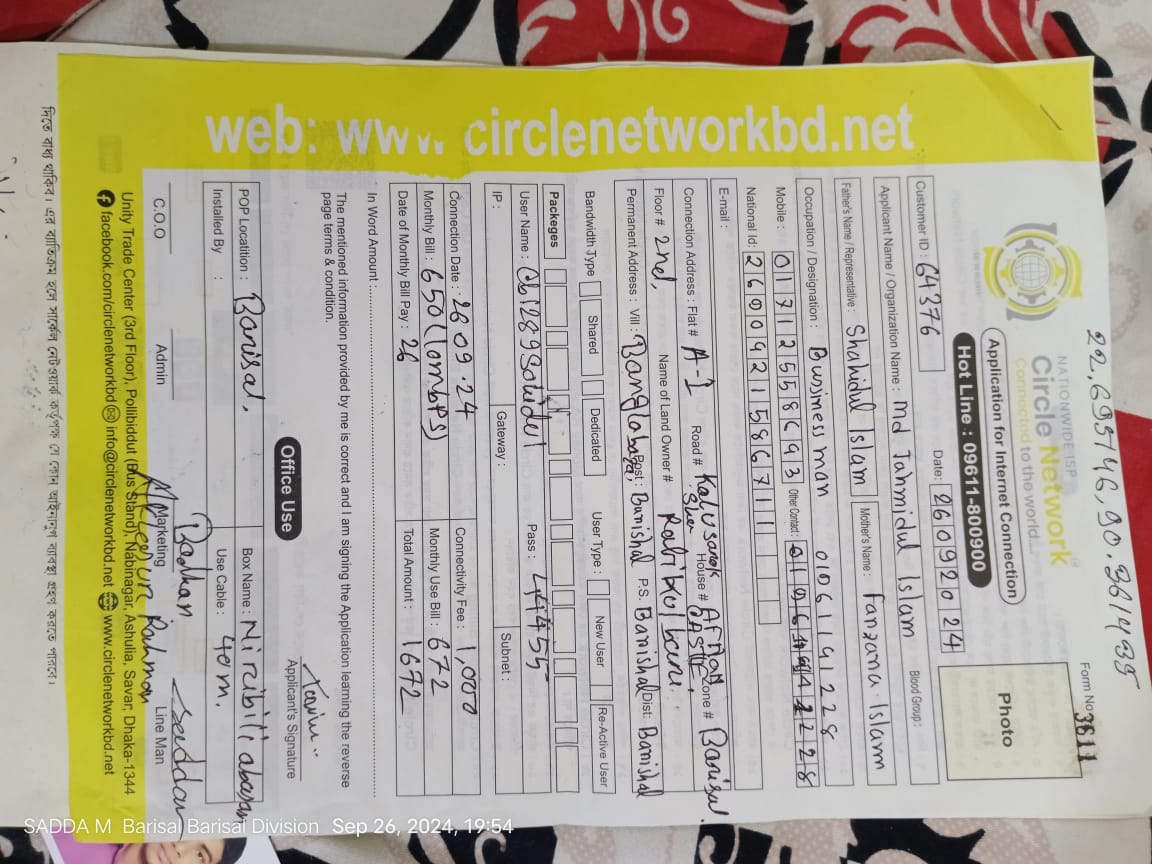 22.695146,90.3614935
Form No 3611
NATIONWIDE ISP
Circle Network
Connected to the world...
Application for Internet Connection
Hot Line : 09611-800900
Photo
Customer ID : 64376 Date: 26092024
Applicant Name / Organization Name : Md Tahmidul Islam Blood Group :
Father's Name / Representative : Shahidul Islam Mother's Name : Farzana Islam
Occupation / Designation : Bussiness man 01061191228
Mobile : 01712558693 Other Contact :
National Id: 2690942158671
E-mail :
Connection Address : Flat # A-1 Road # House # Zone # Barisal.
Floor # 2nd, Name of Land Owner #
Permanent Address : Vill : Banglabazar, Post : Barishal P.S. Barishal Dist: Barishal
Bandwidth Type Shared Dedicated User Type : New User Re-Active User
Packeges
User Name : Pass :
IP : Gateway : Subnet :
Connection Date : 26.09.24 Connectivity Fee : 1,000
Monthly Bill : 650 (10mbps) Monthly Use Bill : 672
Date of Monthly Bill Pay : 26 Total Amount : 1672
In Word Amount :
The mentioned information provided by me is correct and I am signing the Application learning the reverse
page terms & condition.
Applicant's Signature
Office Use
POP Locatition : Barisal, Box Name : Niribili abasan
Installed By : Use Cable : 40m.
Badhan
C.O.O Admin Marketing Line Man
Akleepur Rahman
Unity Trade Center (3rd Floor), Pollibiddut (Bus Stand), Nabinagar, Ashulia, Savar, Dhaka-1344
facebook.com/circlenetworkbd info@circlenetworkbd.net www.circlenetworkbd.net
web: www. circlenetworkbd.net
দিতে বাধ্য থাকিব। এর ব্যতিক্রম হলে সার্কেল নেটওয়ার্ক কর্তৃপক্ষ যে কোন আইনানুগ ব্যবস্থা গ্রহণ করতে পারবে।
SADDA M Barisal Barisal Division Sep 26, 2024, 19:54